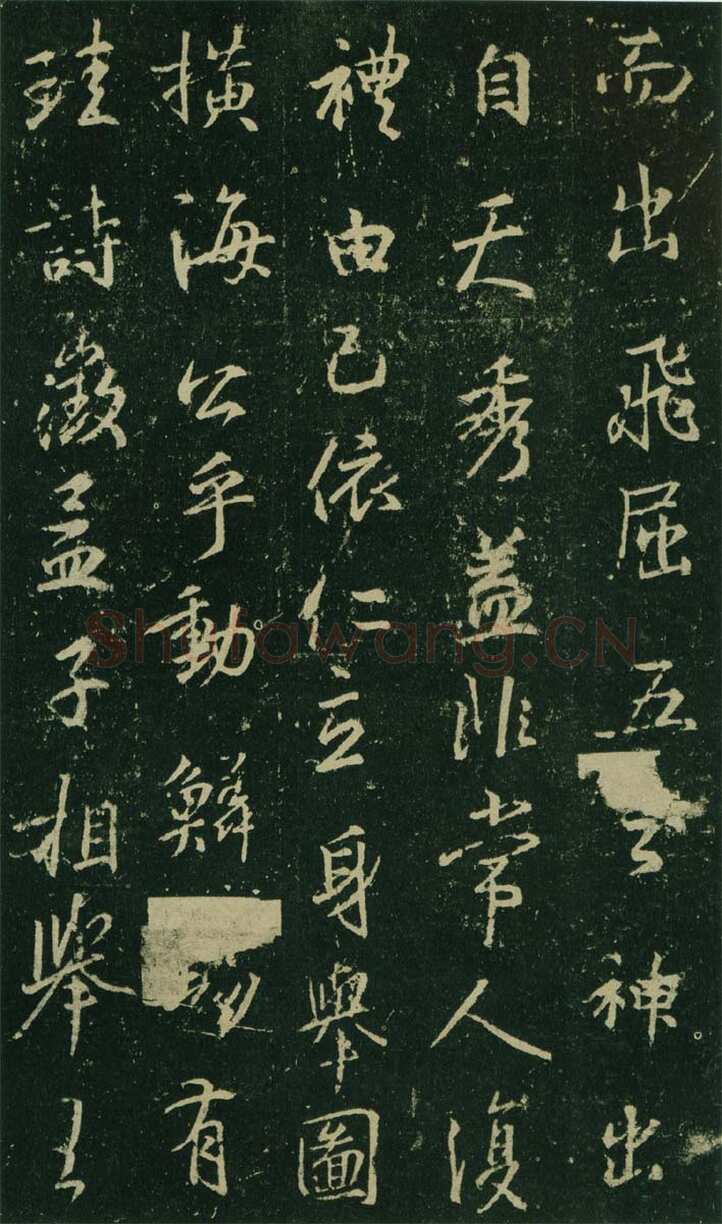 而出飛屈五神出
自天秀蓋非常人復
禮由己依仁立身舉圖
横海公乎動鱗有
珪詩徵孟子相舉
Shufawang.CN